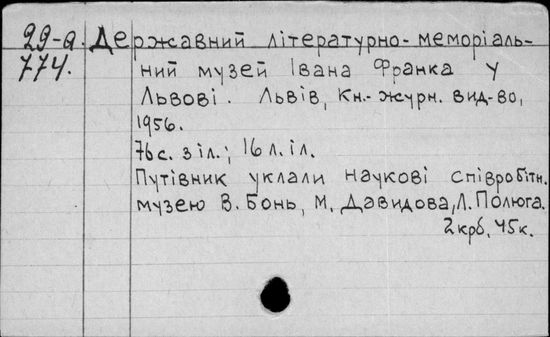 29-а. Державний літературно-меморіаль-
774. ний музей Івана Франка у
Львові. Львів, Кн.-журн. вид-во,
1956.
76 с. з іл.; 16 л. іл.
Путівник уклали наукові співробітн.
музею В. Бонь, М. Давидова, Л. Полюга.
2 крб. 45 к.